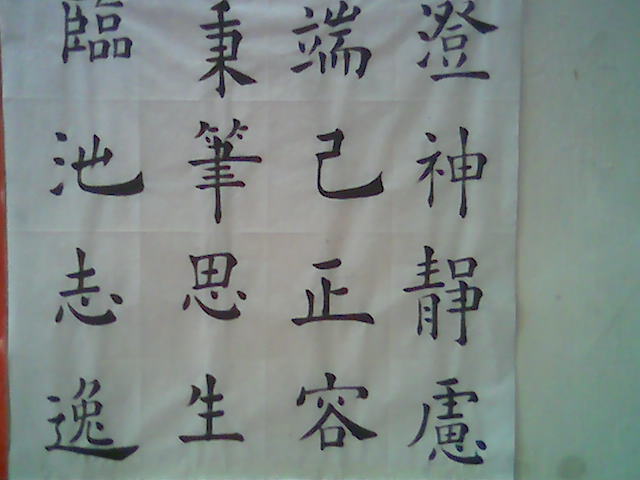 澄神靜慮
端己正容
秉筆思生
臨池志逸